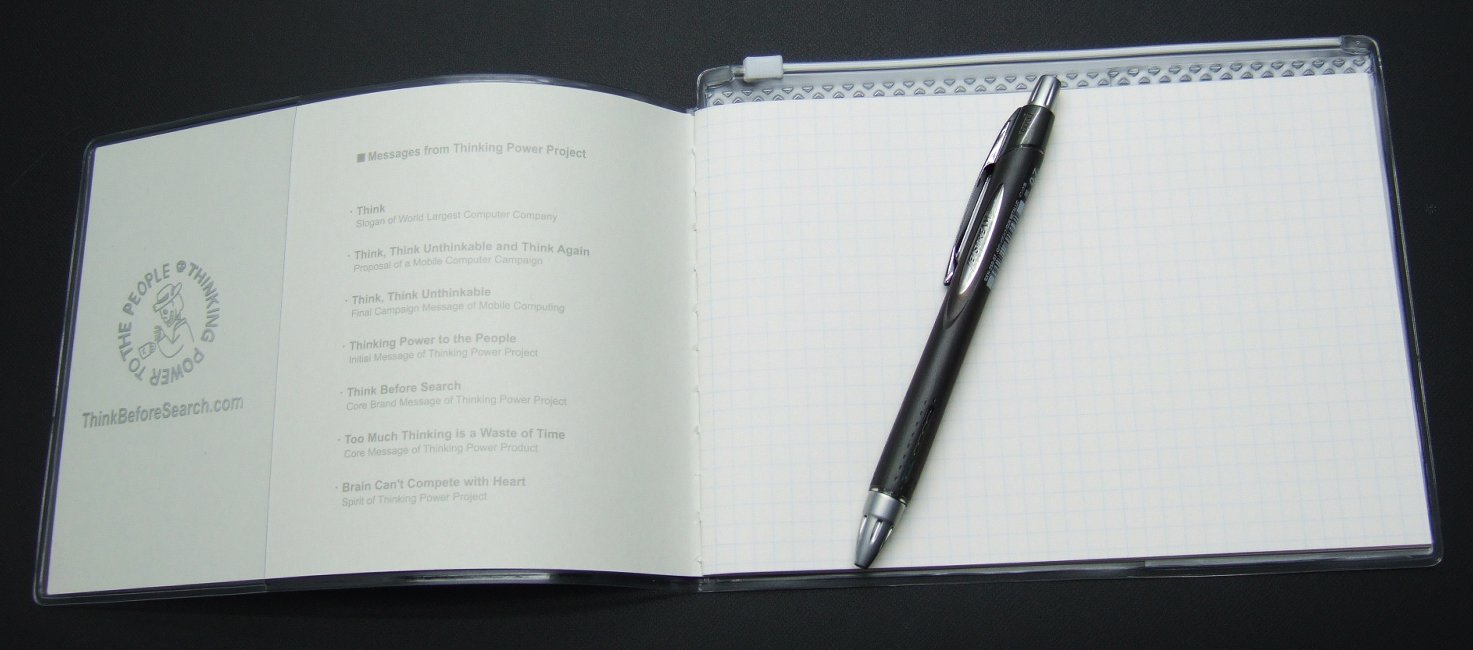 THINKING POWER TO THE PEOPLE @
ThinkBeforeSearch.com
■ Messages from Thinking Power Project
· Think
Slogan of World Largest Computer Company
· Think, Think Unthinkable and Think Again
Proposal of a Mobile Computer Campaign
· Think, Think Unthinkable
Final Campaign Message of Mobile Computing
· Thinking Power to the People
Initial Message of Thinking Power Project
· Think Before Search
Core Brand Message of Thinking Power Project
· Too Much Thinking is a Waste of Time
Core Message of Thinking Power Product
· Brain Can't Compete with Heart
Spirit of Thinking Power Project
JETSTREAM